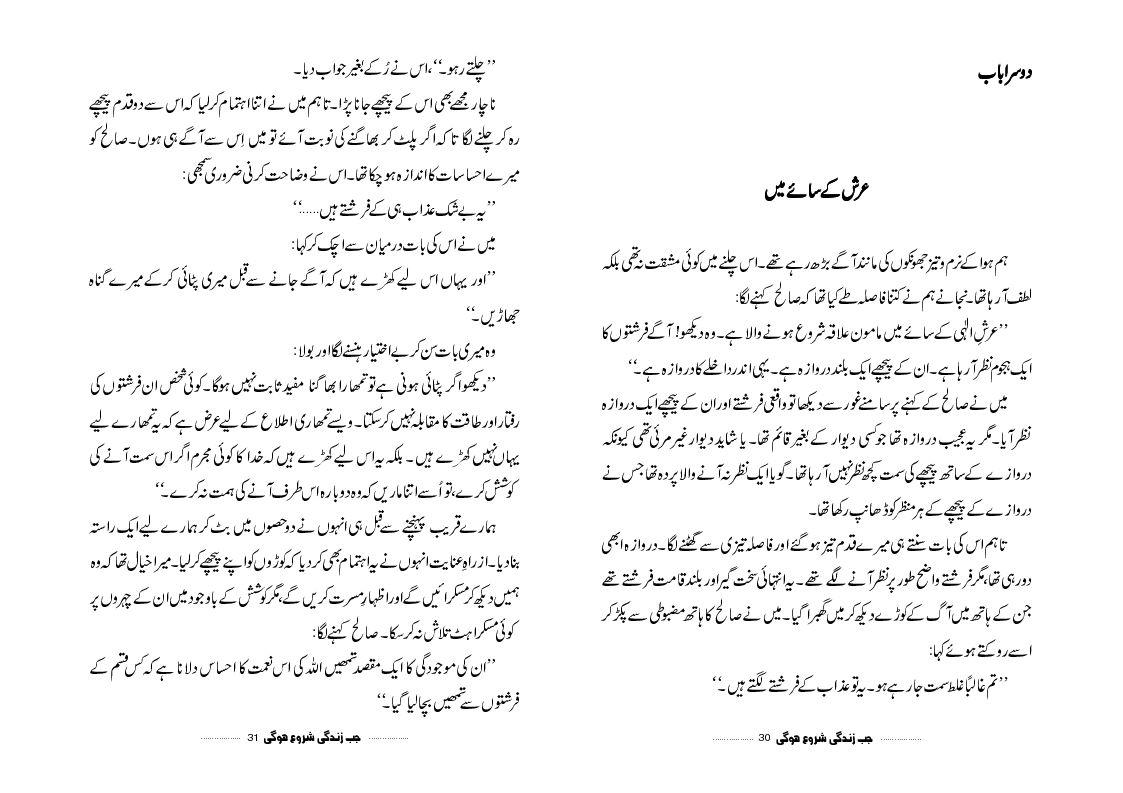 دوسرا باب
عرش کے سائے میں
ہم ہوا کے نرم و تیز جھونکوں کی مانند آگے بڑھ رہے تھے۔ اس چلنے میں کوئی مشقت نہ تھی بلکہ
لطف آ رہا تھا۔ نجانے ہم نے کتنا فاصلہ طے کیا تھا کہ صالح کہنے لگا:
’’عرشِ الٰہی کے سائے میں مامون علاقہ شروع ہونے والا ہے۔ وہ دیکھو! آگے فرشتوں کا
ایک ہجوم نظر آ رہا ہے۔ ان کے پیچھے ایک بلند دروازہ ہے۔ یہی اندر داخلے کا دروازہ ہے۔‘‘
میں نے صالح کے کہنے پر سامنے غور سے دیکھا تو واقعی فرشتے اور ان کے پیچھے ایک دروازہ
نظر آیا۔ مگر یہ عجیب دروازہ تھا جو کسی دیوار کے بغیر قائم تھا۔ یا شاید دیوار غیر مرئی تھی کیونکہ
دروازے کے ساتھ پیچھے کی سمت کچھ نظر نہیں آ رہا تھا۔ گویا ایک نظر نہ آنے والا پردہ تھا جس نے
دروازے کے پیچھے کے ہر منظر کو ڈھانپ رکھا تھا۔
تاہم اس کی بات سنتے ہی میرے قدم تیز ہو گئے اور فاصلہ تیزی سے گھٹنے لگا۔ دروازہ ابھی
دور ہی تھا، مگر فرشتے واضح طور پر نظر آنے لگے تھے۔ یہ انتہائی سخت گیر اور بلند قامت فرشتے تھے
جن کے ہاتھ میں آگ کے کوڑے دیکھ کر میں گھبرا گیا۔ میں نے صالح کا ہاتھ مضبوطی سے پکڑ کر
اسے روکتے ہوئے کہا:
’’تم غالباً غلط سمت جا رہے ہو۔ یہ تو عذاب کے فرشتے لگتے ہیں۔‘‘
................ 30 جب زندگی شروع ہوگی ................
’’چلتے رہو۔‘‘، اس نے رُکے بغیر جواب دیا۔
ناچار مجھے بھی اس کے پیچھے جانا پڑا۔ تاہم میں نے اتنا اہتمام کر لیا کہ اس سے دو قدم پیچھے
رہ کر چلنے لگا تا کہ اگر پلٹ کر بھاگنے کی نوبت آئے تو میں اِس سے آگے ہی ہوں۔ صالح کو
میرے احساسات کا اندازہ ہو چکا تھا۔ اس نے وضاحت کرنی ضروری سمجھی:
’’یہ بے شک عذاب ہی کے فرشتے ہیں......‘‘
میں نے اس کی بات درمیان سے اچک کر کہا:
’’اور یہاں اس لیے کھڑے ہیں کہ آگے جانے سے قبل میری پٹائی کر کے میرے گناہ
جھاڑیں۔‘‘
وہ میری بات سن کر بے اختیار ہنسنے لگا اور بولا:
’’دیکھو اگر پٹائی ہونی ہے تو تمھارا بھاگنا مفید ثابت نہیں ہوگا۔ کوئی شخص ان فرشتوں کی
رفتار اور طاقت کا مقابلہ نہیں کر سکتا۔ ویسے تمھاری اطلاع کے لیے عرض ہے کہ یہ تمھارے لیے
یہاں نہیں کھڑے ہیں۔ بلکہ یہ اس لیے کھڑے ہیں کہ خدا کا کوئی مجرم اگر اس سمت آنے کی
کوشش کرے، تو اُسے اتنا ماریں کہ وہ دوبارہ اس طرف آنے کی ہمت نہ کرے۔‘‘
ہمارے قریب پہنچنے سے قبل ہی انہوں نے دو حصوں میں بٹ کر ہمارے لیے ایک راستہ
بنا دیا۔ ازراہِ عنایت انہوں نے یہ اہتمام بھی کر دیا کہ کوڑوں کو اپنے پیچھے کر لیا۔ میرا خیال تھا کہ وہ
ہمیں دیکھ کر مسکرائیں گے اور اظہارِ مسرت کریں گے، مگر کوشش کے باوجود میں ان کے چہروں پر
کوئی مسکراہٹ تلاش نہ کر سکا۔ صالح کہنے لگا:
’’ان کی موجودگی کا ایک مقصد تمھیں اللہ کی اس نعمت کا احساس دلانا ہے کہ کس قسم کے
فرشتوں سے تمھیں بچا لیا گیا۔‘‘
................ 31 جب زندگی شروع ہوگی ................